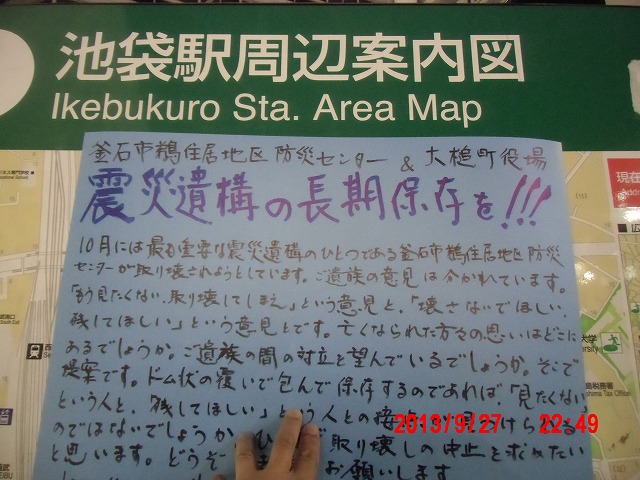 池袋駅周辺案内図
Ikebukuro Sta. Area Map
現在
釜石市鵜住居地区防災センター & 大槌町役場
震災遺構の長期保存を!!!
10月には最も重要な震災遺構のひとつである釜石市鵜住居地区防災
センターが取り壊されようとしています。ご遺族の意見は分かれています。
「もう見たくない。取り壊してしまえ」という意見と、「壊さないでほしい。
残してほしい」という意見とです。亡くなられた方々の思いはどこに
あるでしょうか。ご遺族の間の対立を望んでいるでしょうか。そこで
提案です。ドーム状の覆いで包んで保存するのであれば、「見たくない」
という人と、「残してほしい」という人との接点
のではないでしょうか。 取り壊しの中止を求めたい
と思います。どうぞ お願いします
2013/9/27 22:49